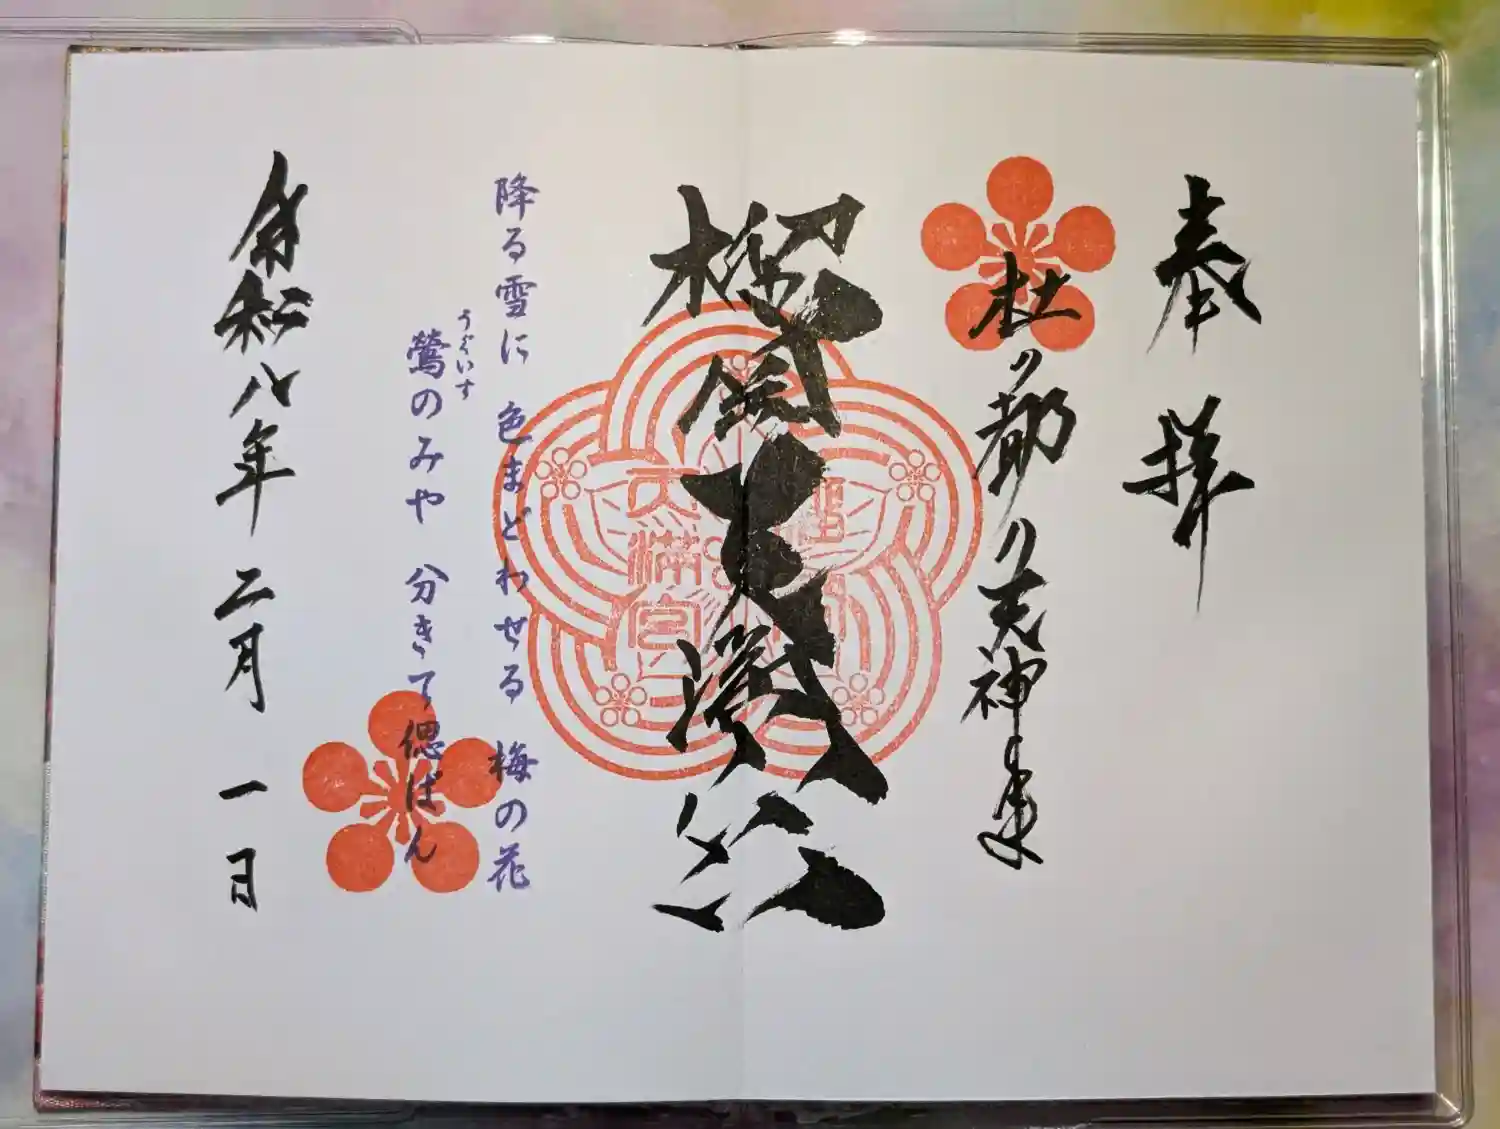 奉拝
杜ノ都ノ天神
榴岡天満宮
天満宮
降る雪に 色まどわせる 梅の花
うぐいす
鶯のみや 分きて偲ばん
令和八年 二月 一日